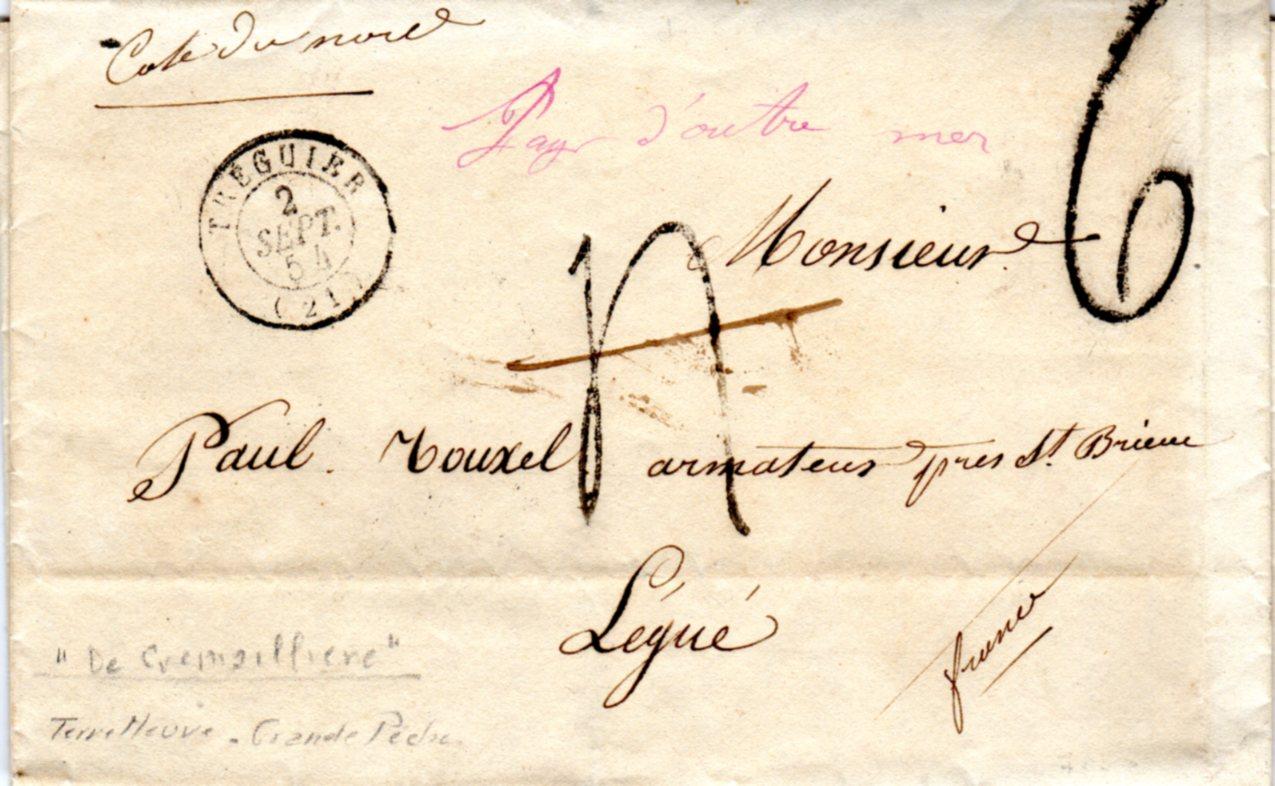 Cote du nord
Pays d'outre mer
6
TRÉGUIER
2
SEPT.
54
(21)
Monsieur
Paul Rouxel armateur près St. Brieuc
Légué
france
"De Cremaillière"
Terre Neuve - Grande Pêche